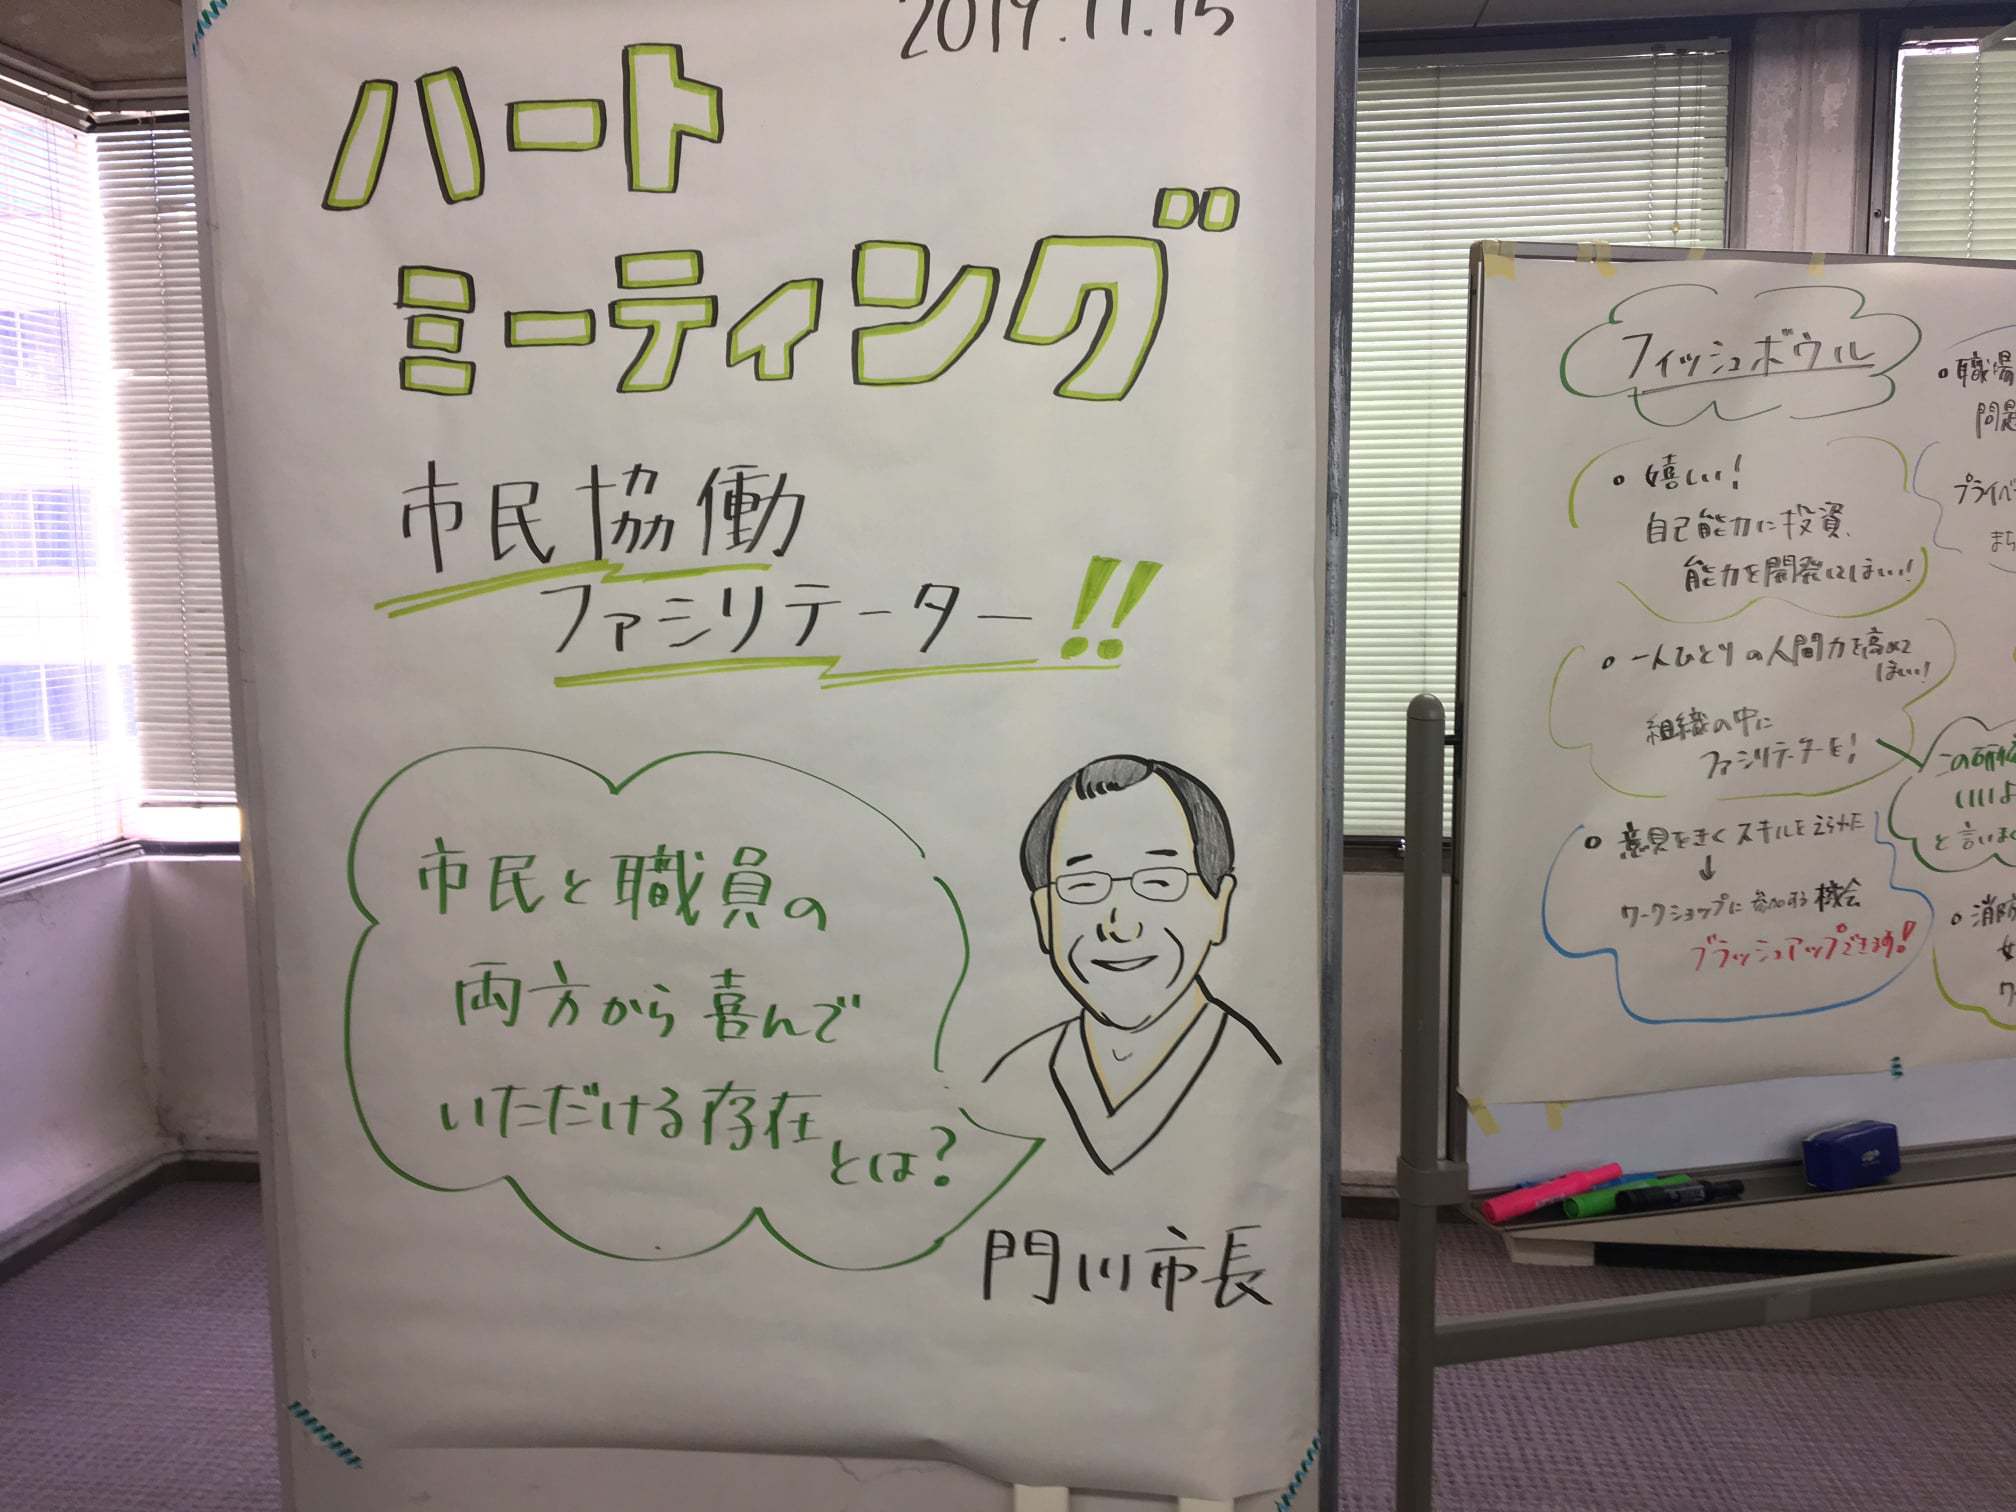 2019.11.15
ハート
ミーティング
市民協働
ファシリテーター!!
市民と職員の
両方から喜んで
いただける存在
とは?
門川市長
フィッシュボウル
嬉しい!
自己能力に投資
能力を開発してほしい!
一人ひとりの人間力を高めて
ほしい!
組織の中に
ファシリテーターを!
意見をきくスキルを
↓
ワークショップに参加する機会
ブラッシュアップできます!
職場
問題
プライベ
まち
この研修
いいよ
と言い
消防
女
ワー